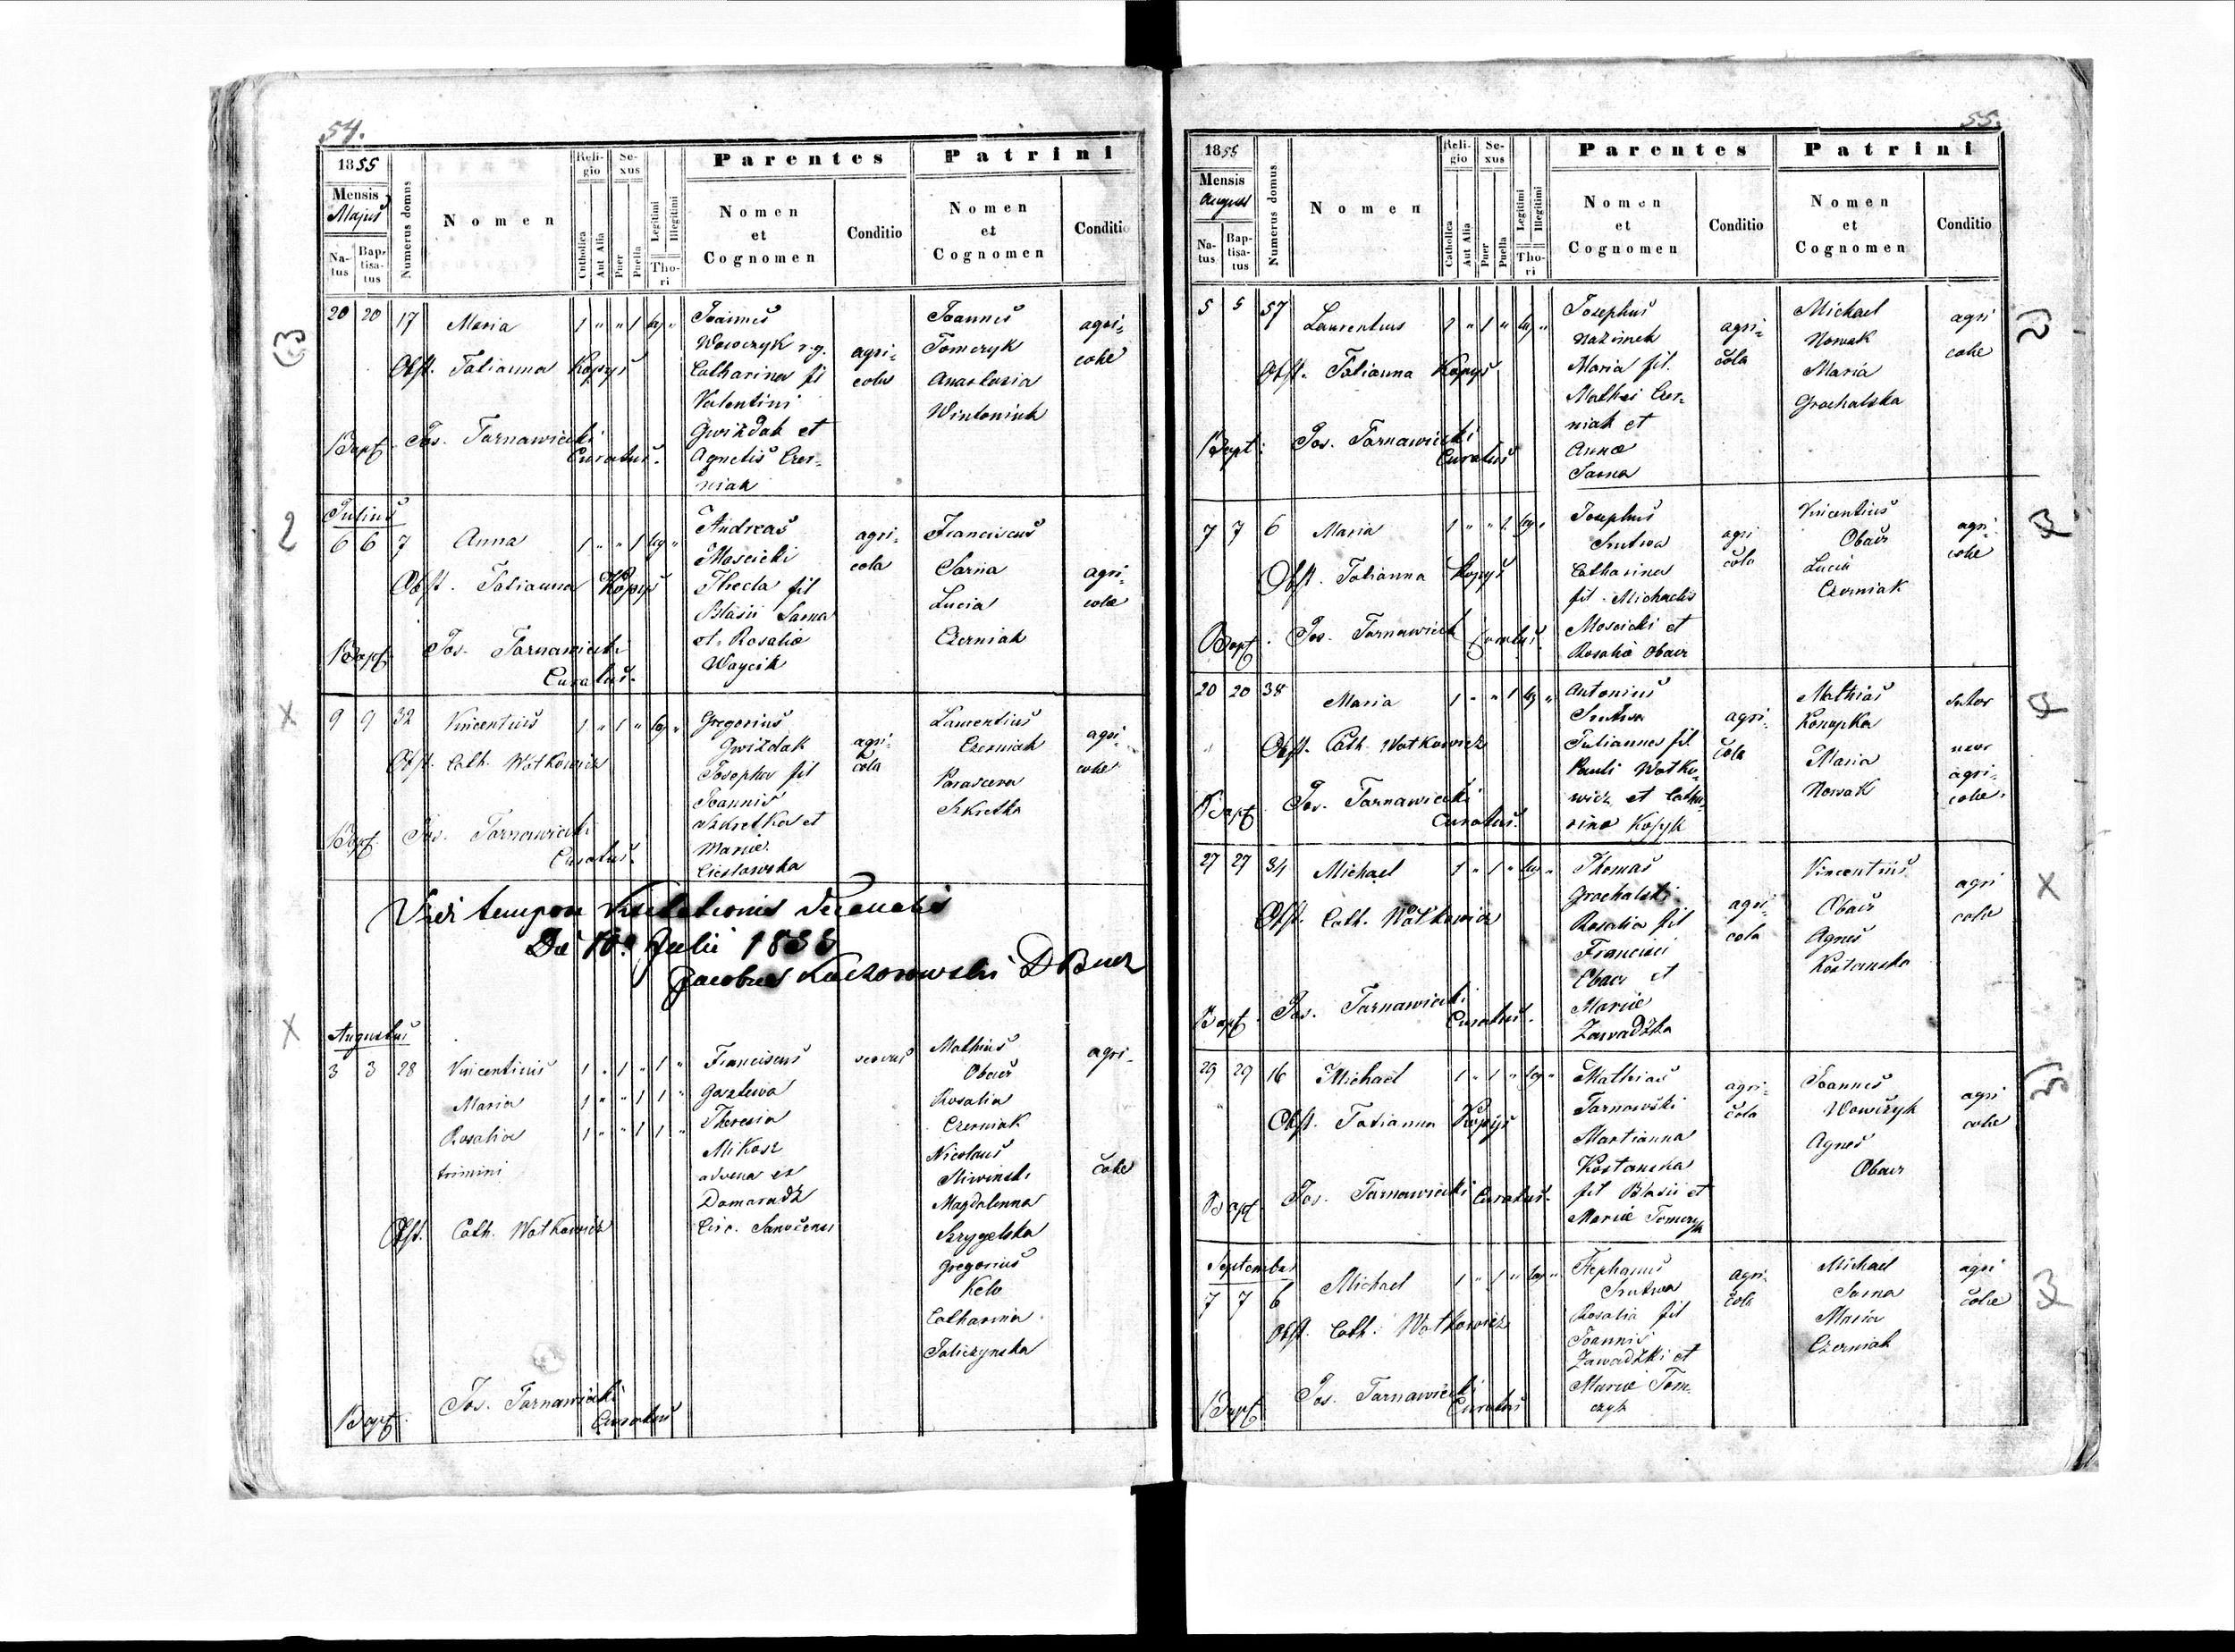 54.
1855
Mensis
Majus
Natus
Baptisatus
Numerus domus
Nomen
Religio
Catholica
Aut Alia
Sexus
Puer
Puella
Legitimi
Illegitimi
Thori
Parentes
Nomen
et
Cognomen
Conditio
Patrini
Nomen
et
Cognomen
Conditio
20 20 17 Maria 1 " " 1 leg "
Obst. Tatianna Kopyś
Bapt. Jos. Tarnawiecki
Curatus.
Joannes
Wowczyk r.g.
Catharina fil
Valentini
Gwizdak et
Agnetis Czer-
niak
agri-
cola
Joannes
Tomczyk
Anastasia
Wintoniak
agri-
colae
Julius
6 6 7 Anna 1 " " 1 leg "
Obst. Tatianna Kopyś
Bapt. Jos. Tarnawiecki
Curatus.
Andreas
Moscicki
Thecla fil
Blasii Sarna
et Rosaliae
Waycik
agri-
cola
Franciscus
Sarna
Lucia
Czerniak
agri-
colae
9 9 32 Vincentius 1 " 1 " leg "
Obst. Cath. Watkowicz
Bapt. Jos. Tarnawiecki
Curatus.
Gregorius
Gwizdak
Josepha fil
Joannis
Szkretka et
Mariae
Cieslawska
agri-
cola
Laurentius
Czerniak
Parascewa
Szkretka
agri-
colae
Vidi tempore Visitationis Decanalis
Die 10. Julii 1855
Jacobus
Augustus
3 3 28 Vincentius 1 " 1 " 1 "
Maria 1 " " 1 1 "
Rosalia 1 " " 1 1 "
trimini
Obst. Cath. Watkowicz
Bapt. Jos. Tarnawiecki
Curatus
Franciscus
Theresia
Mikosz
advena ex
Domaradz
Circ. Sanocensi
servus
Mathias
Obacz
Rosalia
Czerniak
Nicolaus
Sliwinski
Magdalenna
Szygelska
Gregorius
Catharina
agri-
colae
55.
1855
Mensis
August
Natus
Baptisatus
Numerus domus
Nomen
Religio
Catholica
Aut Alia
Sexus
Puer
Puella
Legitimi
Illegitimi
Thori
Parentes
Nomen
et
Cognomen
Conditio
Patrini
Nomen
et
Cognomen
Conditio
5 5 57 Laurentius 1 " 1 " leg "
Obst. Tatianna Kopyś
Bapt. Jos. Tarnawiecki
Curatus
Josephus
Maria fil.
Mathei Czer-
niak et
Annae
Sarna
agri-
cola
Michael
Nowak
Maria
Grochalska
agri
colae
7 7 6 Maria 1 " " 1 leg "
Obst. Tatianna Kopyś
Bapt. Jos. Tarnawiecki Curatus.
Josephus
Srutwa
Catharina
fil. Michaelis
Moscicki et
Rosaliae Obacz
agri
cola
Vincentius
Obacz
Lucia
Czerniak
agri-
colae
20 20 38 Maria 1 " " 1 leg "
Obst. Cath. Watkowicz
Bapt. Jos. Tarnawiecki
Curatus.
Antonius
Srutwa
Julianna fil.
Pauli Watko-
wicz et Catha-
rinae Kopyś
agri-
cola
Mathias
Konopka
Maria
Nowak
sutor
agri-
colae.
27 27 34 Michael 1 " 1 " leg "
Obst. Cath. Watkowicz
Bapt. Jos. Tarnawiecki
Curatus.
Thomas
Grochalski
Rosalia fil
Francisci
Obacz et
Mariae
Zawadzka
agri-
cola
Vincentius
Obacz
Agnes
Kostanska
agri
colae
29 29 16 Michael 1 " 1 " leg "
Obst. Tatianna Kopyś
Bapt. Jos. Tarnawiecki Curatus.
Mathias
Tarnowski
Martianna
Kostanska
fil Blasii et
Mariae Tomczyk
agri-
cola
Joannes
Wowczyk
Agnes
Obacz
agri
colae
September
7 7 6 Michael 1 " 1 " leg "
Obst. Cath. Watkowicz
Bapt. Jos. Tarnawiecki
Curatus
Stephanus
Srutwa
Rosalia fil
Joannis
Zawadzki et
Mariae Tom-
czyk
agri-
cola
Michael
Sarna
Maria
Czerniak
agri
colae